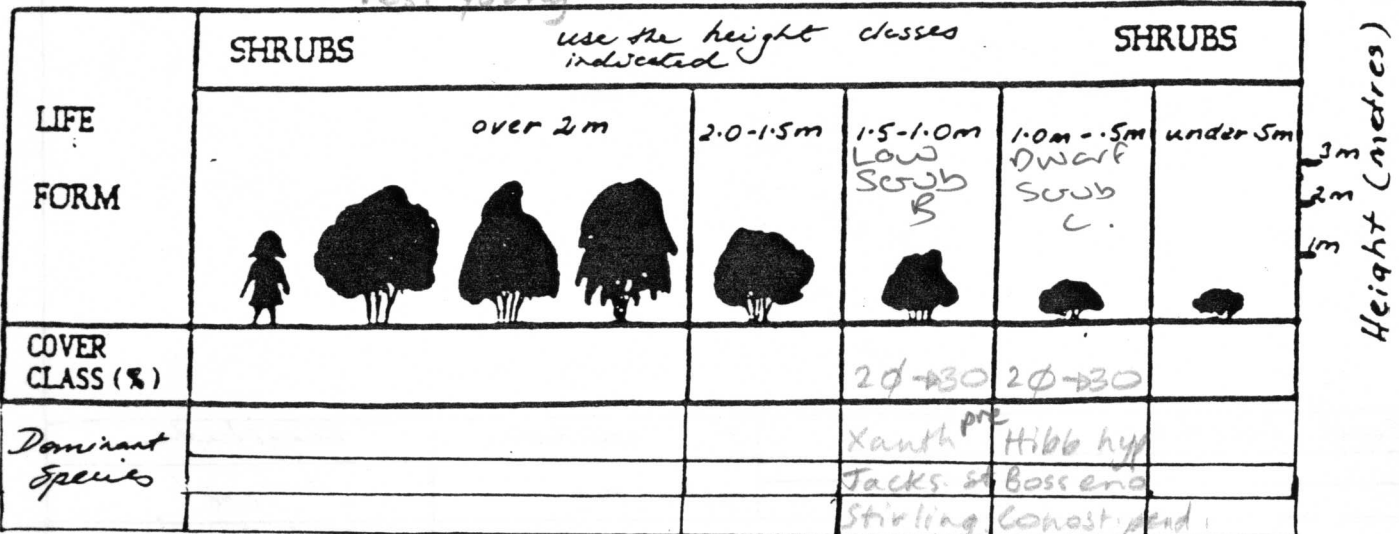 SHRUBS use the height classes indicated SHRUBS
LIFE FORM
over 2m
2.0-1.5m
1.5-1.0m
Low
Scrub
B
1.0m-.5m
Dwarf
Scrub
C.
under .5m
3m
2m
1m
Height (metres)
COVER CLASS (%)
20→30 20→30
Dominant Species
Xanth pre Hibb hyp
Jacks. st Boss erio
Stirling Conost. pend.